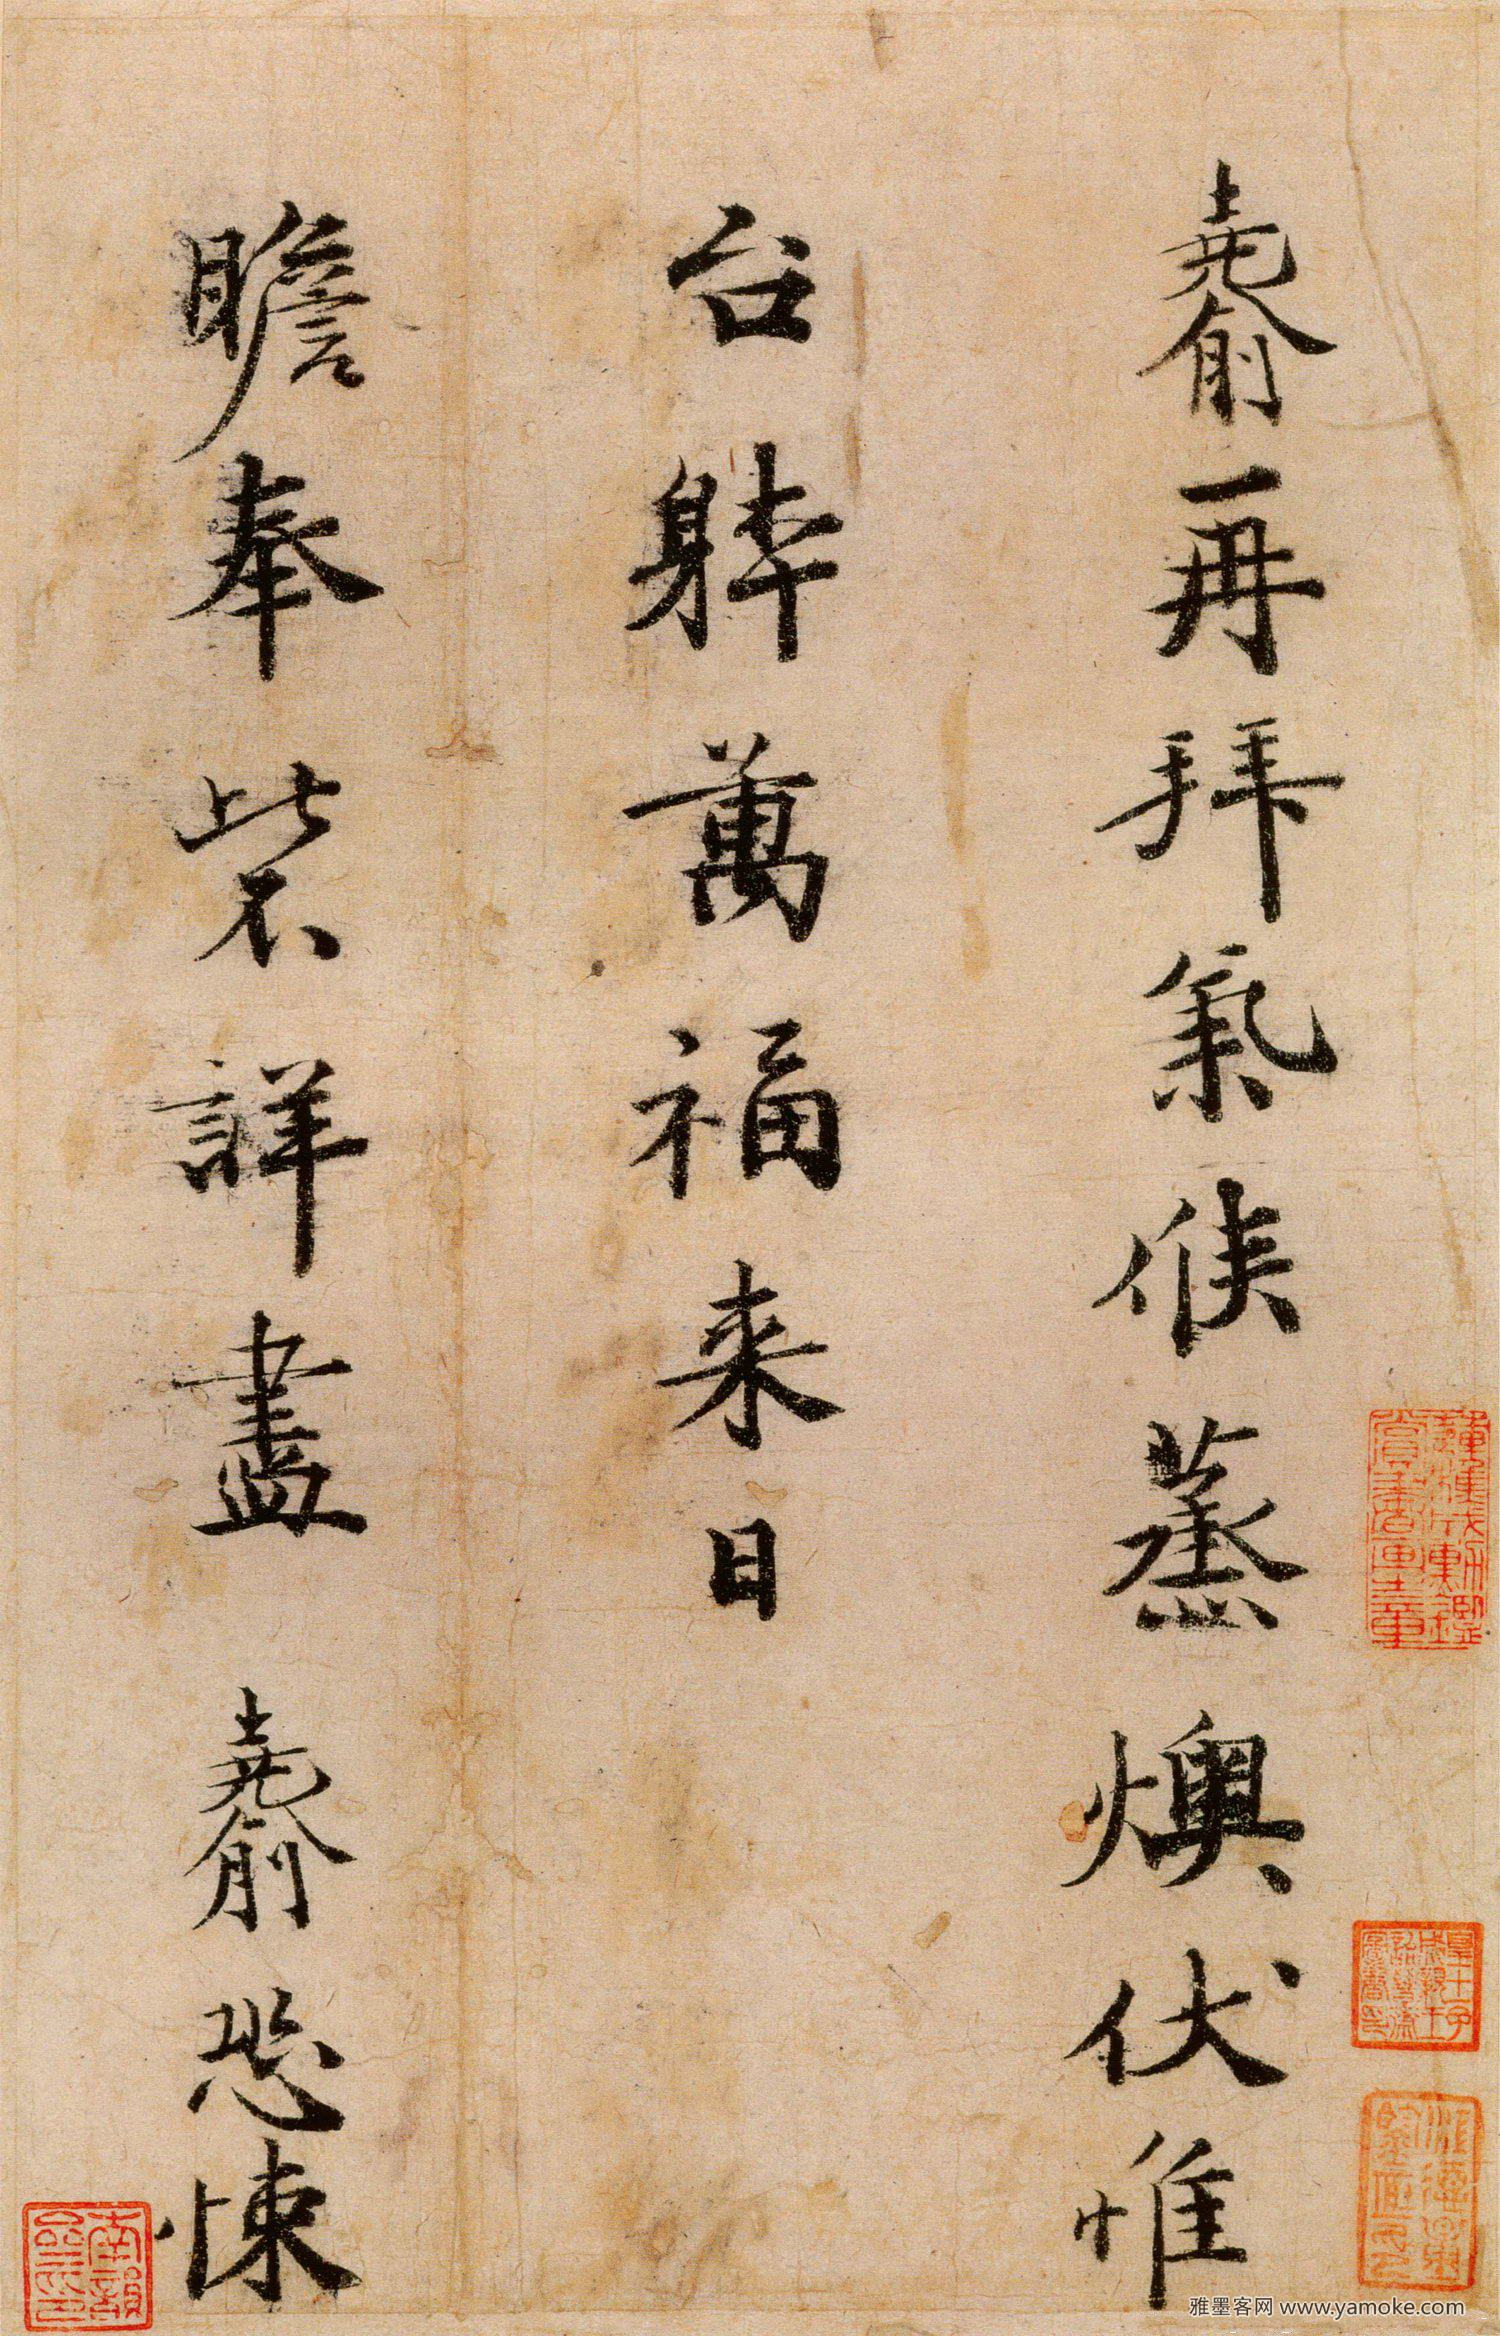 堯俞再拜氣候蒸燠伏惟
台躰萬福来日
瞻奉此不詳盡 堯俞恐悚
雅墨客网 www.yamoke.com